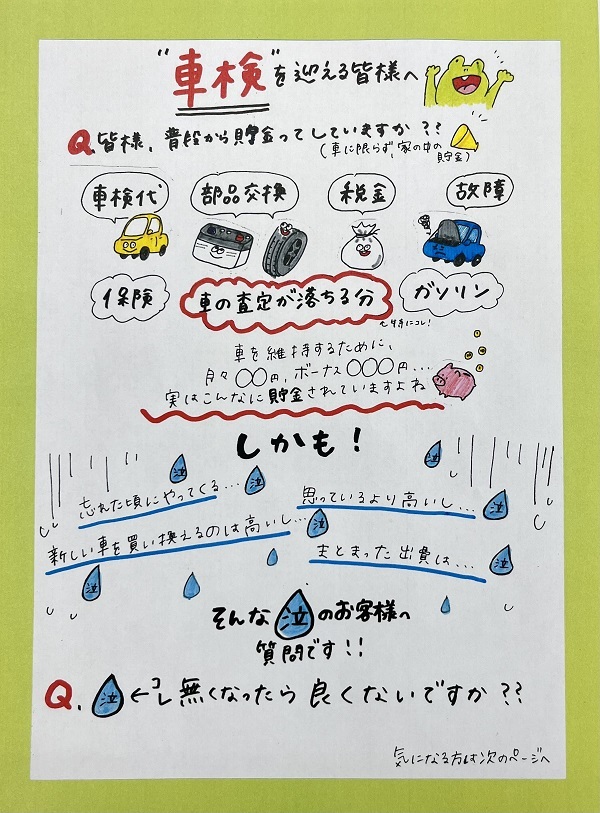 "車検"を迎える皆様へ
Q.皆様、普段から貯金ってしていますか??
(車に限らず、家の中の貯金)
車検代 部品交換 税金 故障
保険 車の査定が落ちる分 ガソリン
特にコレ!
車を維持するために、
月々〇〇円、ボーナス〇〇〇円...
実はこんなに貯金されていますよね
しかも!
忘れた頃にやってくる... 泣 思っているより高いし... 泣
新しい車を買い換えるのは高いし... 泣 まとまった出費は... 泣
泣
泣
そんな泣のお客様へ
質問です!!
Q.泣←コレ無くなったら良くないですか??
気になる方は次のページへ